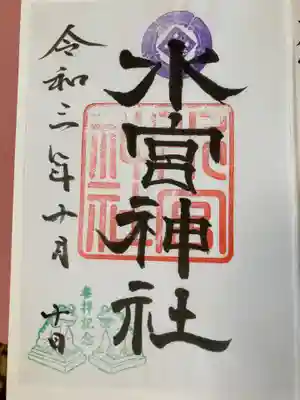 水宮神社
水宮
神社
令和三年十月十日
参拝記念